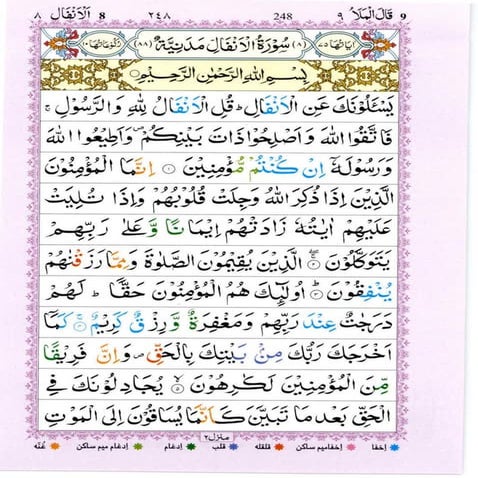 9 قَالَ الْمَلَأُ ٩ 248 ٢٤٨ 8 اَلْاَنْفَال ٨
اٰیَاتُهَا ٧٥ (٨) سُوْرَةُ الْاَنْفَالِ مَدَنِیَّةٌ (٨٨) رُكُوْعَاتُهَا ١٠
بِسْمِ اللّٰهِ الرَّحْمٰنِ الرَّحِیْمِ
یَسْـَٔلُوْنَكَ عَنِ الْاَنْفَالِ ؕ قُلِ الْاَنْفَالُ لِلّٰهِ وَ الرَّسُوْلِ ۚ
فَاتَّقُوا اللّٰهَ وَ اَصْلِحُوْا ذَاتَ بَیْنِكُمْ ۪ وَ اَطِیْعُوا اللّٰهَ
وَ رَسُوْلَهٗۤ اِنْ كُنْتُمْ مُّؤْمِنِیْنَ ۝۱ اِنَّمَا الْمُؤْمِنُوْنَ
الَّذِیْنَ اِذَا ذُكِرَ اللّٰهُ وَجِلَتْ قُلُوْبُهُمْ وَ اِذَا تُلِیَتْ
عَلَیْهِمْ اٰیٰتُهٗ زَادَتْهُمْ اِیْمَانًا وَّ عَلٰى رَبِّهِمْ
یَتَوَكَّلُوْنَ ۝۲ الَّذِیْنَ یُقِیْمُوْنَ الصَّلٰوةَ وَ مِمَّا رَزَقْنٰهُمْ
یُنْفِقُوْنَ ۝۳ اُولٰٓىِٕكَ هُمُ الْمُؤْمِنُوْنَ حَقًّا ؕ لَهُمْ
دَرَجٰتٌ عِنْدَ رَبِّهِمْ وَ مَغْفِرَةٌ وَّ رِزْقٌ كَرِیْمٌ ۝۴ كَمَاۤ
اَخْرَجَكَ رَبُّكَ مِنْۢ بَیْتِكَ بِالْحَقِّ ۪ وَ اِنَّ فَرِیْقًا
مِّنَ الْمُؤْمِنِیْنَ لَكٰرِهُوْنَ ۝۵ یُجَادِلُوْنَكَ فِی
الْحَقِّ بَعْدَ مَا تَبَیَّنَ كَاَنَّمَا یُسَاقُوْنَ اِلَى الْمَوْتِ
منزل ٢
اخفا اخفا میم ساکن قلقله قلب ادغام ادغام میم ساکن غنّه